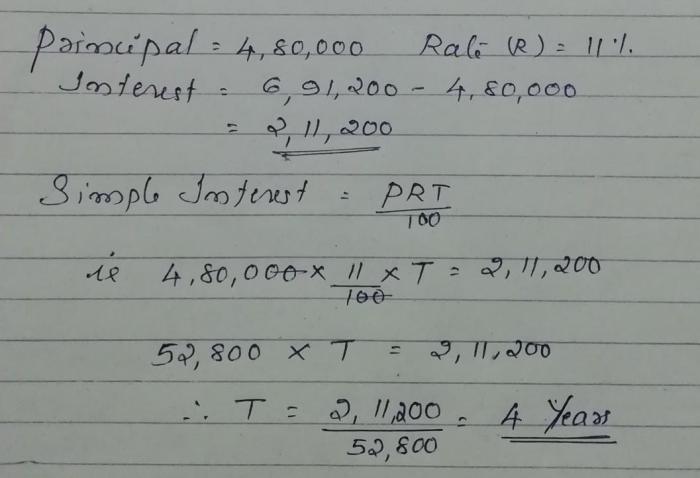 Principal = 4,80,000 Rate (R) = 11%.
Interest = 6,91,200 - 4,80,000
= 2,11,200
Simple Interest = PRT/100
ie 4,80,000 × 11/100 × T = 2,11,200
52,800 × T = 2,11,200
∴ T = 2,11,200/52,800 = 4 Years